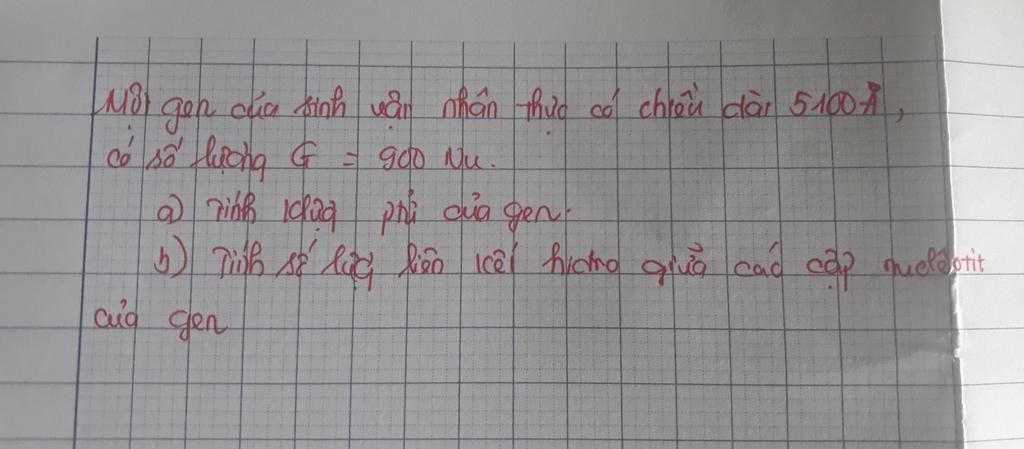 Một gen của sinh vật nhân thực có chiều dài 5100 Å,
có số lượng G = 900 Nu.
a) Tính chu kì phâ của gen.
b) Tính số lượng liên kết hiđrô giữa các cặp nuclêôtit
của gen